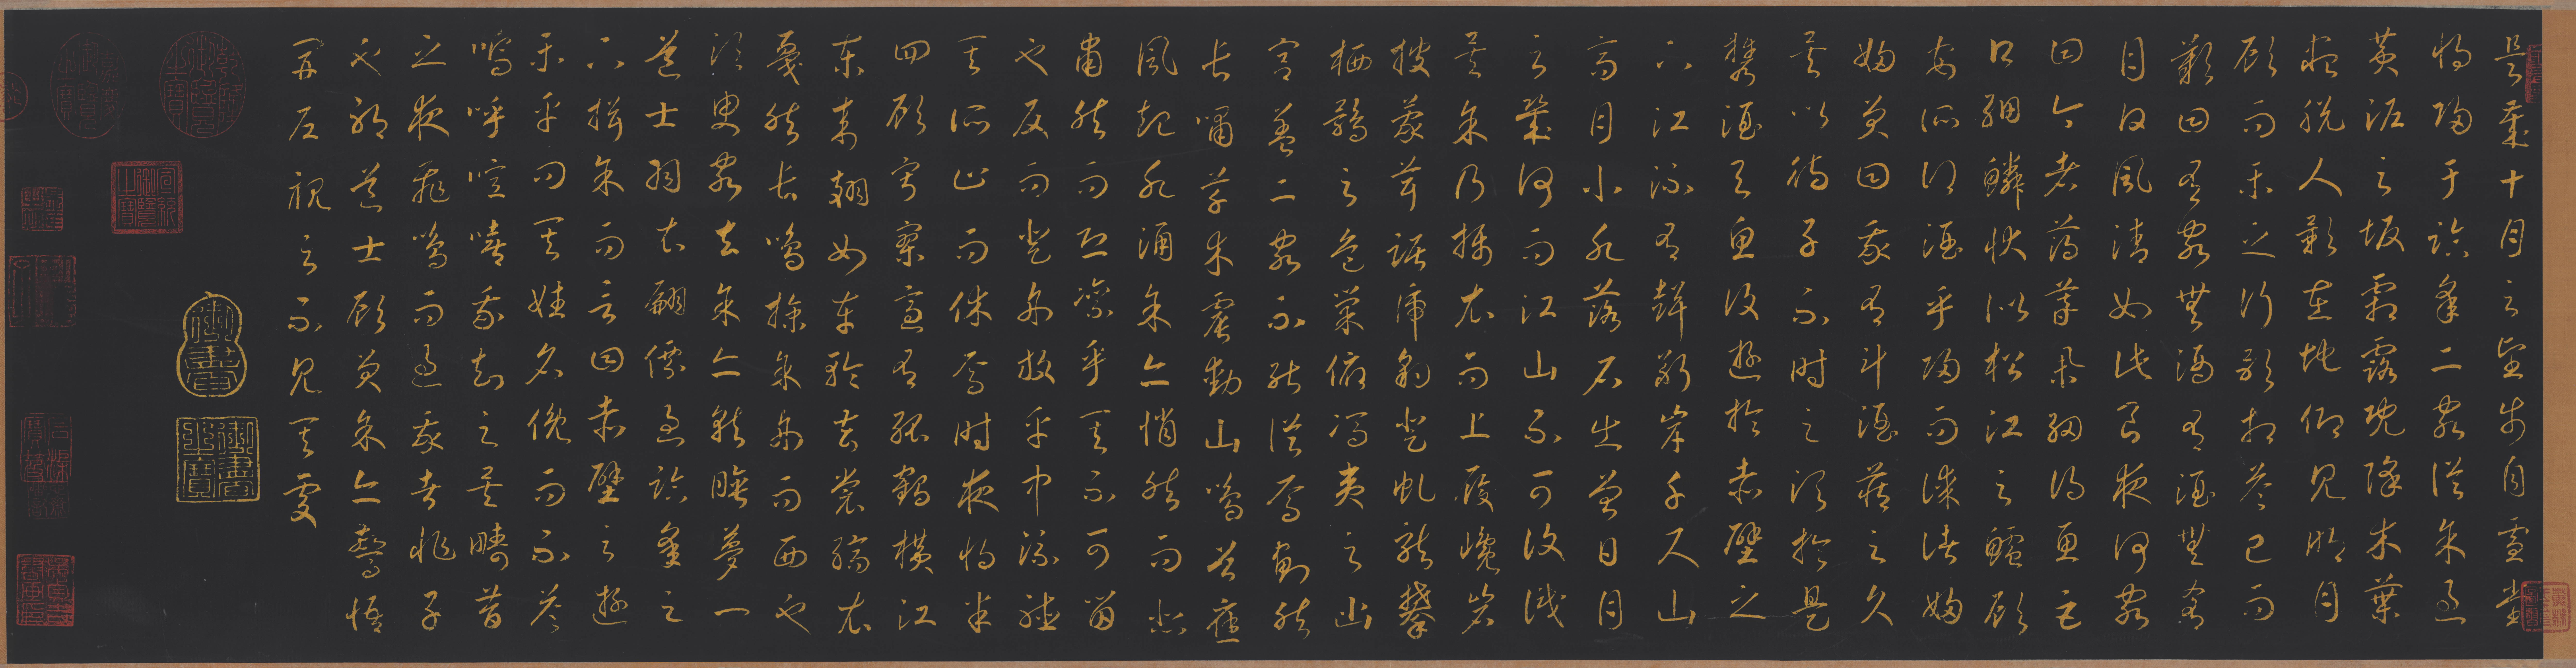 是歲十月之望步自雪堂
將歸于臨皋二客從予過
黃泥之坂霜露既降木葉
盡脫人影在地仰見明月
顧而樂之行歌相答已而
歎曰有客無酒有酒無肴
月白風清如此良夜何客
曰今者薄莫舉網得魚巨
口細鱗狀似松江之鱸顧
安所得酒乎歸而謀諸婦
婦笑曰我有斗酒藏之久
矣以待子不時之須於是
攜酒與魚復遊於赤壁之
下江流有聲斷岸千尺山
高月小水落石出曾日月
之幾何而江山不可復識
矣予乃攝衣而上履巉岩
披蒙茸踞虎豹登虬龍攀
栖鶻之危巢俯馮夷之幽
宮蓋二客不能從焉劃然
長嘯草木震動山鳴谷應
風起水涌予亦悄然而悲
肅然而恐凜乎其不可留
也反而登舟放乎中流聽
其所止而休焉時夜將半
四顧寂寥適有孤鶴橫江
東來翅如車輪玄裳縞衣
戛然長鳴掠予舟而西也
須臾客去予亦就睡夢一
道士羽衣翩僊過臨皋之
下揖予而言曰赤壁之遊
樂乎問其姓名俛而不答
嗚呼噫嘻我知之矣疇昔
之夜飛鳴而過我者非子
也耶道士顧笑予亦驚悟
開戶視之不見其處
御書
御書之寶
乾隆御覽之寶
宣統御覽之寶
嘉慶御覽之寶